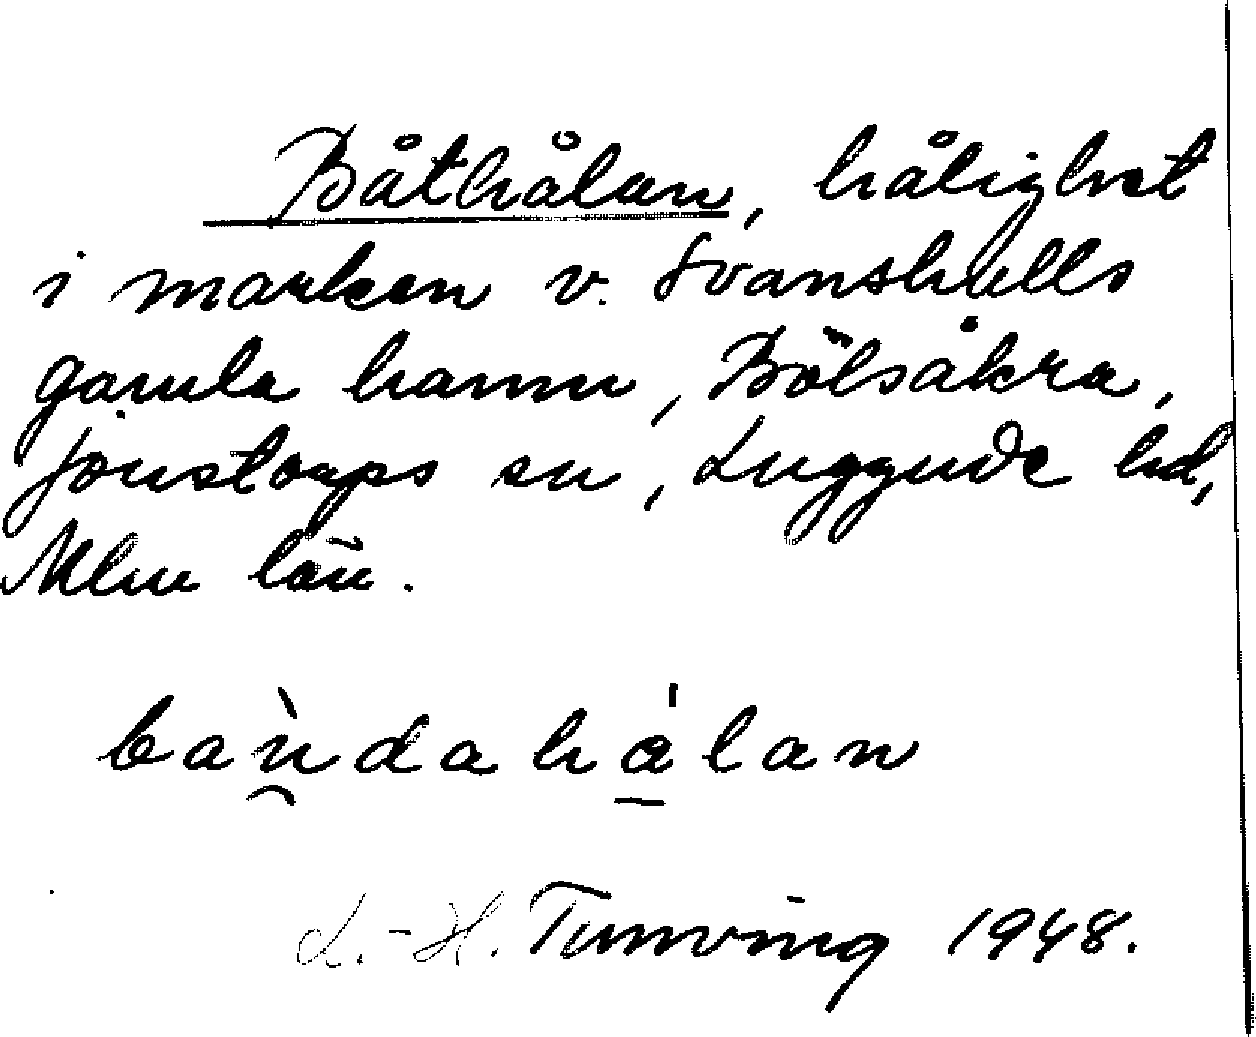 Båthålan, hålighet
i marken v. Svanshalls
gamla hamn, Bölsåkra,
Jonstorps sn, Luggude hd,
Mlm län.
baùdahålan
L.-H. Tunving 1948.